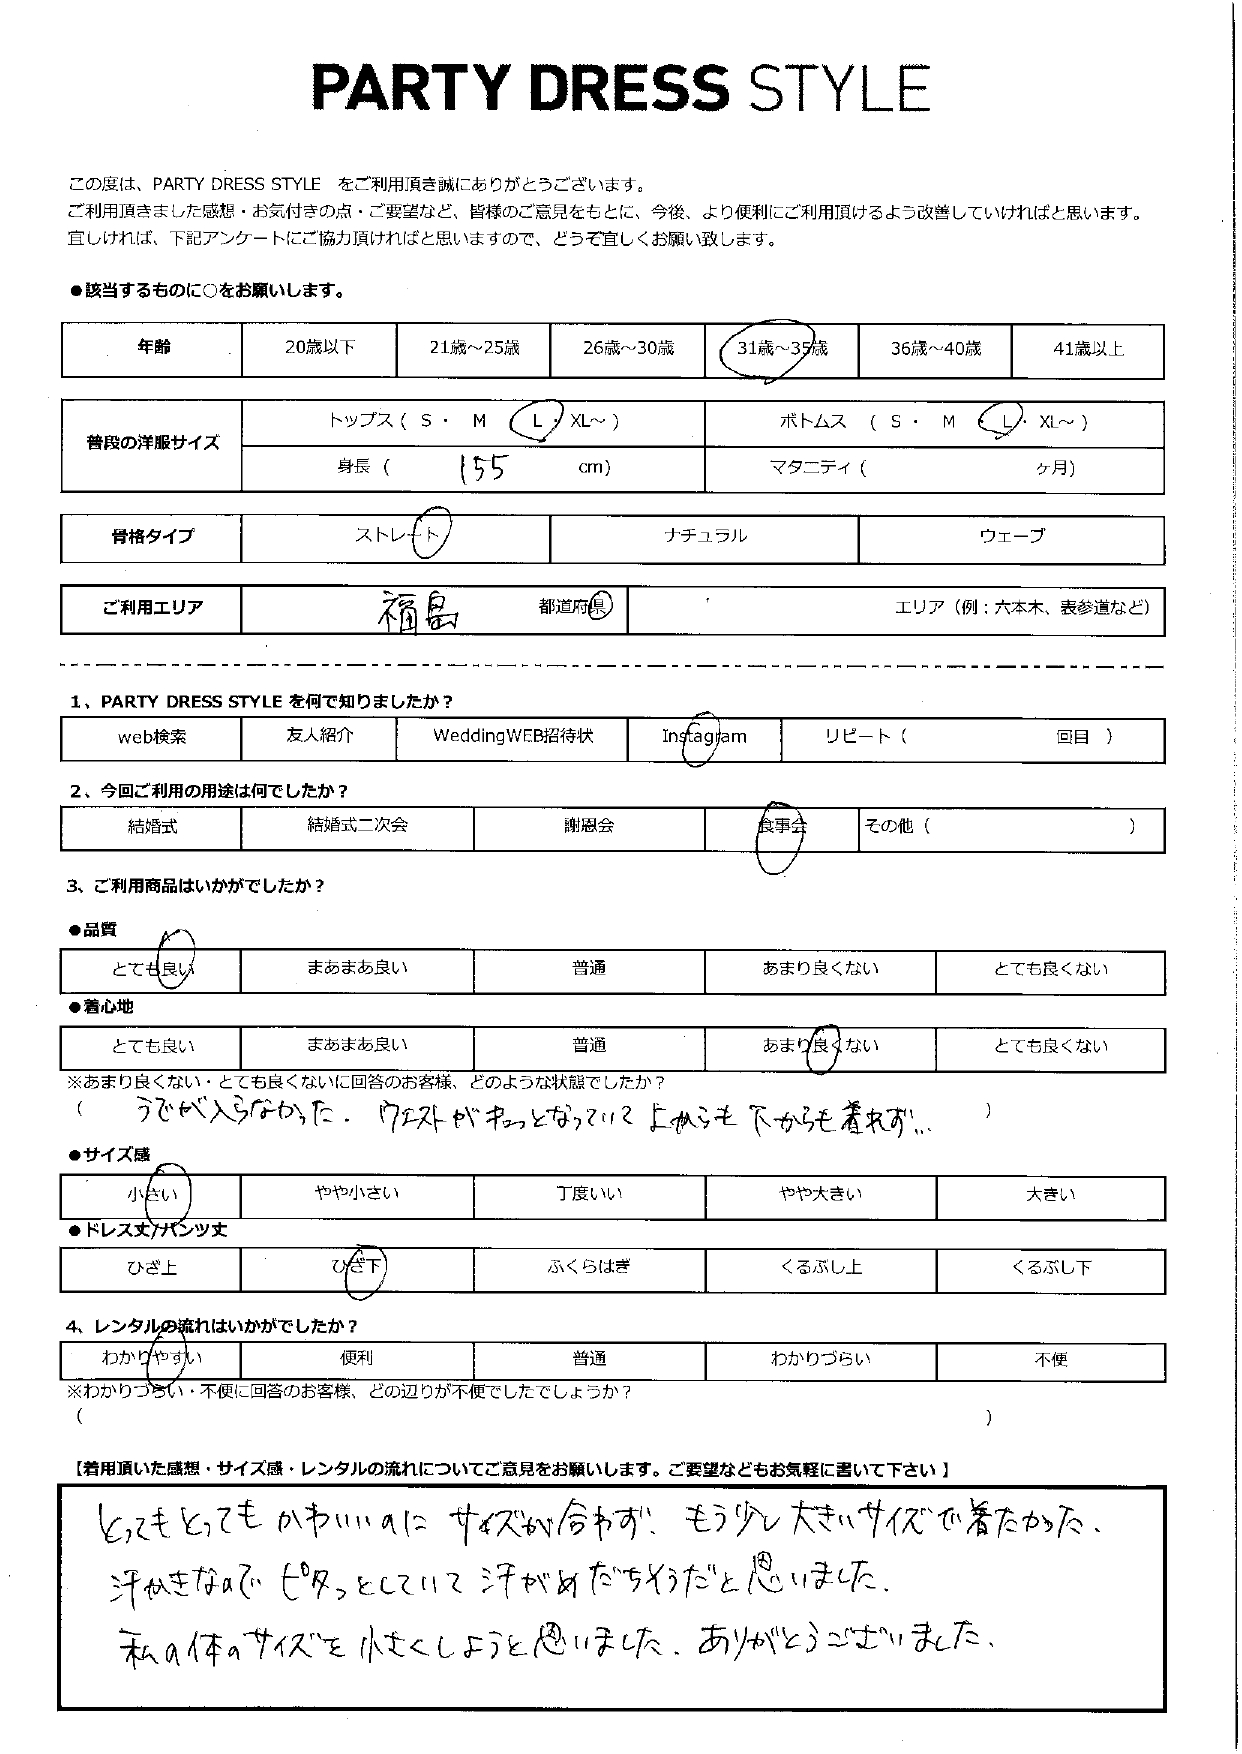 PARTY DRESS STYLE
この度は、PARTY DRESS STYLE をご利用頂き誠にありがとうございます。
ご利用頂きました感想・お気付きの点・ご要望など、皆様のご意見をもとに、今後、より便利にご利用頂けるよう改善していければと思います。
宜しければ、下記アンケートにご協力頂ければと思いますので、どうぞ宜しくお願い致します。
●該当するものに○をお願いします。
年齢 20歳以下 21歳～25歳 26歳～30歳 31歳～35歳 36歳～40歳 41歳以上
普段の洋服サイズ トップス ( S ・ M ・ L ・ XL～ ) ボトムス ( S ・ M ・ L ・ XL～ )
身長 ( 155 cm) マタニティ ( ヶ月)
骨格タイプ ストレート ナチュラル ウェーブ
ご利用エリア 福島 都道府県 エリア（例：六本木、表参道など）
1、PARTY DRESS STYLE を何で知りましたか？
web検索 友人紹介 WeddingWEB招待状 Instagram リピート ( 回目 )
2、今回ご利用の用途は何でしたか？
結婚式 結婚式二次会 謝恩会 食事会 その他 ( )
3、ご利用商品はいかがでしたか？
●品質
とても良い まあまあ良い 普通 あまり良くない とても良くない
●着心地
とても良い まあまあ良い 普通 あまり良くない とても良くない
※あまり良くない・とても良くないに回答のお客様、どのような状態でしたか？
( うでが入らなかった. ウエストがキュッとなっていて上からも下からも着れず... )
●サイズ感
小さい やや小さい 丁度いい やや大きい 大きい
●ドレス丈/パンツ丈
ひざ上 ひざ下 ふくらはぎ くるぶし上 くるぶし下
4、レンタルの流れはいかがでしたか？
わかりやすい 便利 普通 わかりづらい 不便
※わかりづらい・不便に回答のお客様、どの辺りが不便でしたでしょうか？
( )
【着用頂いた感想・サイズ感・レンタルの流れについてご意見をお願いします。ご要望などもお気軽に書いて下さい 】
とってもとってもかわいいのにサイズが合わず、もう少し大きいサイズで着たかった、
汗かきなのでピタっとしていて汗がめだちそうだと思いました.
私の体のサイズを小さくしようと思いました. ありがとうございました、